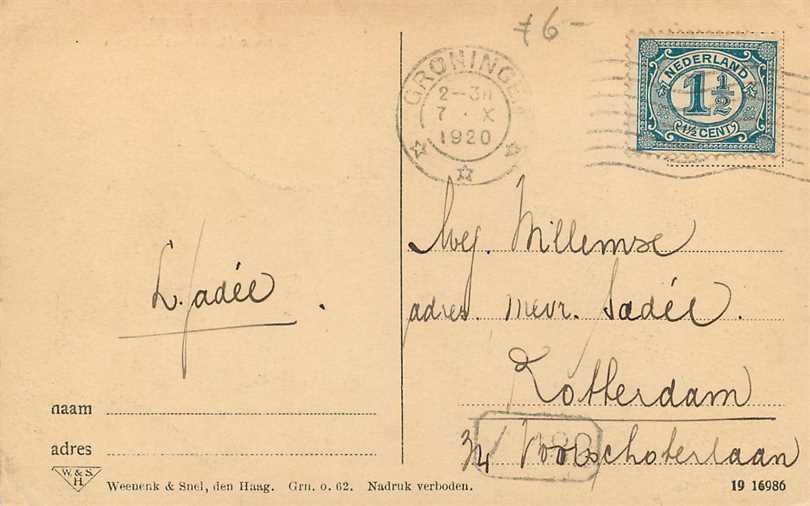 76-
GRONINGEN
2-3N
7 · X
1920
NEDERLAND
1½
1½ CENT
Mej. Willemse
adres. mevr. Sadée.
Rotterdam
Voorschoterlaan
L. Sadée
naam
adres
W. & S.
H.
Weenenk & Snel, den Haag. Grn. o. 62. Nadruk verboden.
19 16986